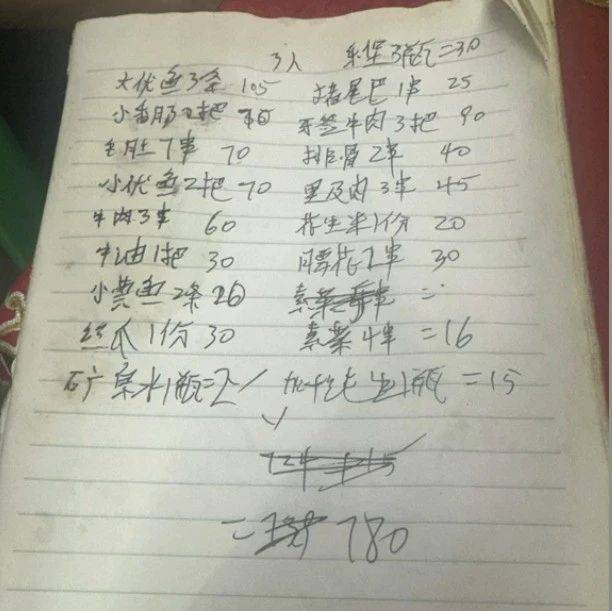 3人 乐堡3瓶=30
大优鱼3条 105 猪尾巴1串 25
小香肠2把 牙签牛肉3把 90
7串 70 排骨2串 40
小优鱼2把 70 里及肉3串 45
牛肉3串 60 花生米1份 20
牛油1把 30 腰花2串 30
小黄鱼2条 20 素菜 =
丝瓜1份 30 素菜4串 =16
矿泉水1瓶=2 1瓶 =15
=780